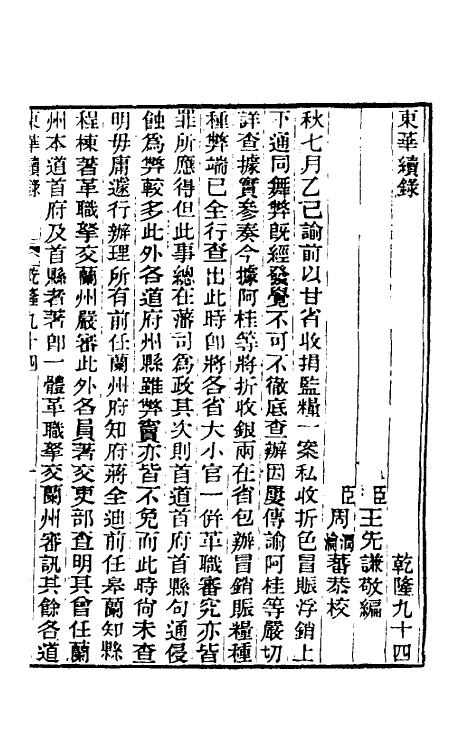 東華續錄　乾隆九十四
臣王先謙敬編
臣周潤蕃周瀹蕃恭校
秋七月乙巳諭前以甘省收捐監糧一案私收折色冒賑浮銷上
下通同舞弊旣經發覺不可不徹底查辦因屢傳諭阿桂等嚴切
詳查據實參奏今據阿桂等將折收銀兩在省包辦冒銷賑糧種
種弊端已全行查出此時卽將各省大小官一併革職審究亦皆
罪所應得但此事總在藩司爲政其次則首道首府首縣句通侵
蝕爲弊較多此外各道府州縣雖弊竇亦皆不免而此時尙未查
明毋庸遽行辦理所有前任蘭州府知府蔣全迪前任皋蘭知縣
程棟著革職拏交蘭州嚴審此外各員著交吏部查明其曾任蘭
州本道首府及首縣者著卽一體革職拏交蘭州審訊其餘各道
東華續錄　乾隆九十四　一